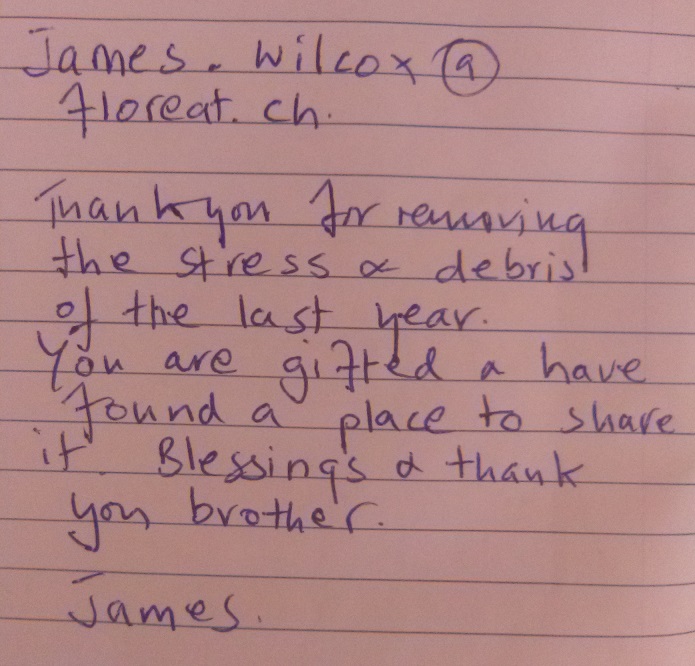 James. Wilcox @
floreat. ch.
Thank you for removing
the stress & debris
of the last year.
You are gifted & have
found a place to share
it. Blessings & thank
you brother.
James.